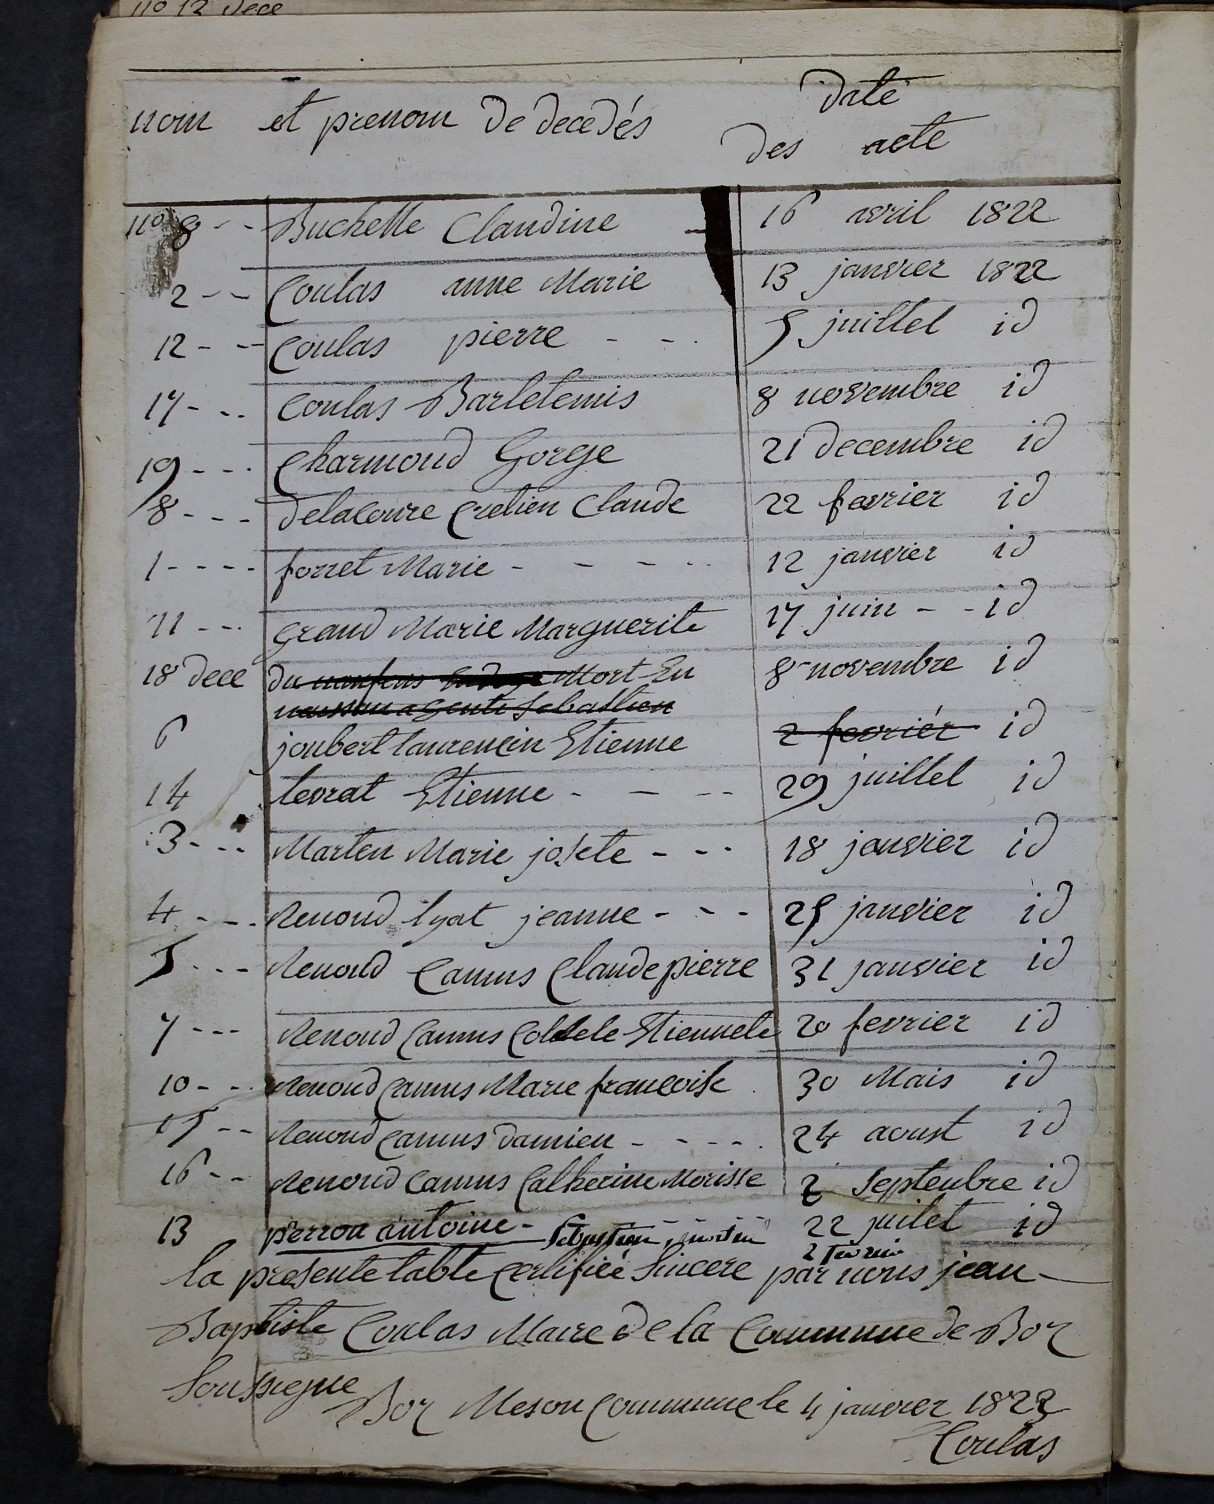 no 12 Dece
nom et prenom De decedés date
des acte
no 8 -- Buchelle Claudine 16 avril 1822
2 -- Coulas anne Marie 13 janvier 1822
12 -- Coulas pierre - - . 5 juillet id
17 - .. Coulas Bartelemis 8 novembre id
19 --- Charmond Gorge 21 decembre id
8 --- delacoure cretien Claude 22 fevrier id
1 ---- forret Marie - - - .. 12 janvier id
11 --. grand Marie Marguerite 17 juin - - id
18 dece du Mort En 8 novembre id
agente Sebastien
6 joubert laurencin Etienne 2 fevrier id
14 levrat Etienne - - -- 29 juillet id
3 --- Marten Marie josete - - - 18 janvier id
4 --. Renoud lyat jeanne - - - 25 janvier id
5 --- Renoud Camus Claude pierre 31 janvier id
7 --- Renoud Camus Colete Etiennete 20 fevrier id
10 - - Renoud Camus Marie francoise 30 Mais id
15 -- Renoud Camus damien - - - -. 24 aoust id
16 -- Renoud Camus Catherine Morisse 2 Septenbre id
13 perron antoine - 22 juilet id
2 fevrier
la presente table Certifiée Sincere par nous jean
Baptiste Coulas Maire de la Commune de Boz
Soussiegne
Boz Meson Commune le 4 janvier 1822
Coulas